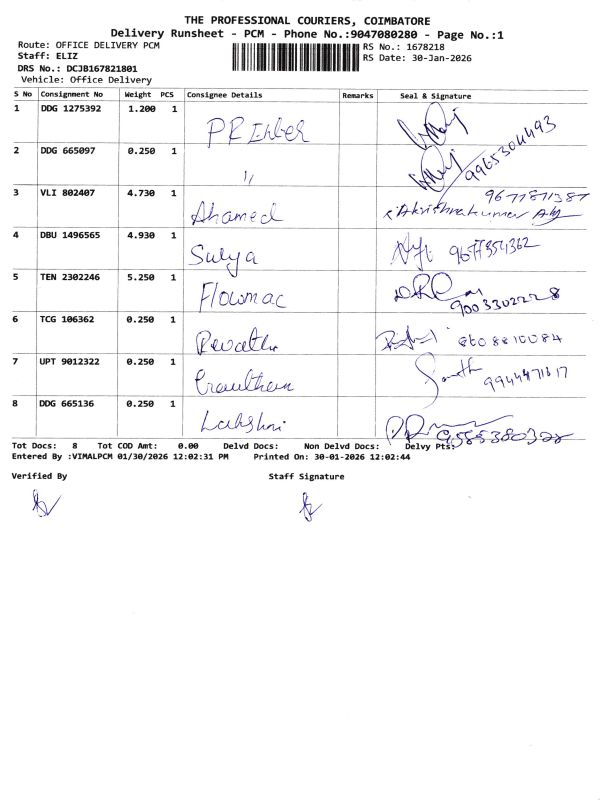 THE PROFESSIONAL COURIERS, COIMBATORE
Delivery Runsheet - PCM - Phone No.:9047080280 - Page No.:1
Route: OFFICE DELIVERY PCM
Staff: ELIZ
DRS No.: DCJB167821801
Vehicle: Office Delivery
RS No.: 1678218
RS Date: 30-Jan-2026
S No Consignment No Weight PCS Consignee Details Remarks Seal & Signature
1 DDG 1275392 1.200 1
2 DDG 665097 0.250 1 " 9965304493
3 VLI 802407 4.730 1 Ahamed 9677871387
4 DBU 1496565 4.930 1 Surya
5 TEN 2302246 5.250 1 Flowmac 9003302228
6 TCG 106362 0.250 1 Revathi 8608810084
7 UPT 9012322 0.250 1 Gowtham
8 DDG 665136 0.250 1 Lakshmi 9585380328
Tot Docs: 8 Tot COD Amt: 0.00 Delvd Docs: Non Delvd Docs: Delvy Pts:
Entered By :VIMALPCM 01/30/2026 12:02:31 PM Printed On: 30-01-2026 12:02:44
Verified By Staff Signature